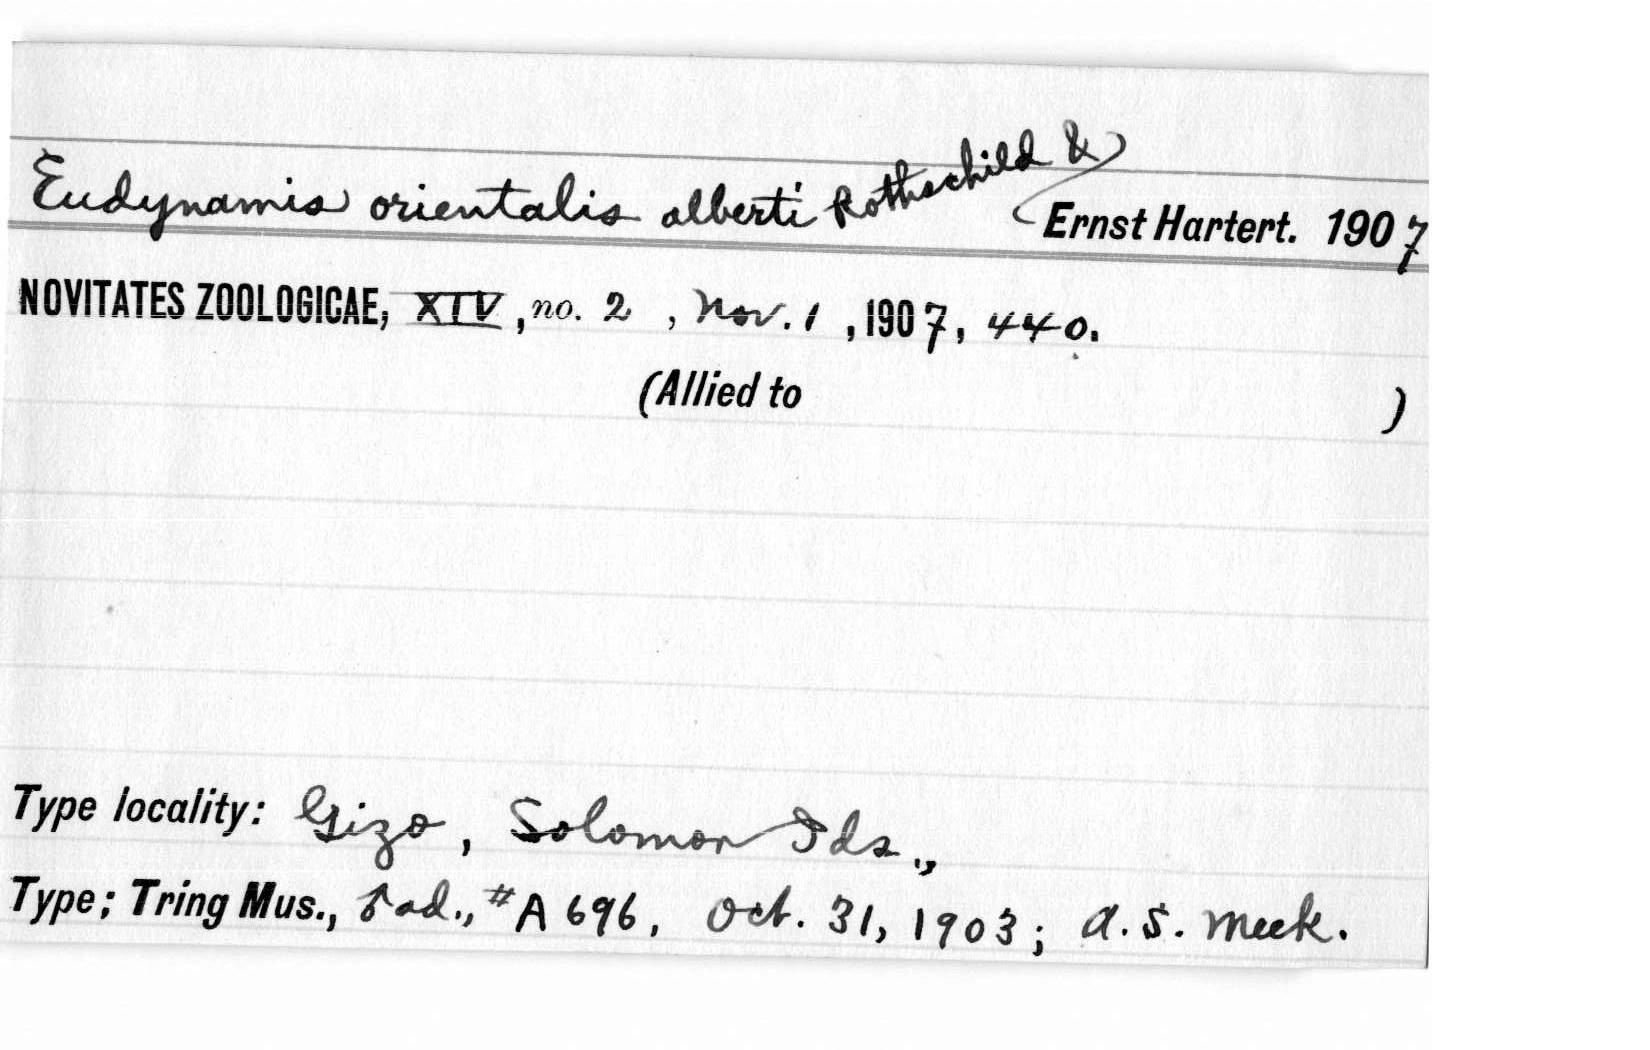 Eudynamis orientalis alberti Rothschild &
Ernst Hartert. 1907
NOVITATES ZOOLOGICAE, XIV, no. 2, Nov. 1, 1907, 440.
(Allied to )
Type locality: Gizo, Solomon Ids.,
Type; Tring Mus., ♂ad., #A696, Oct. 31, 1903; A.S. Meek.